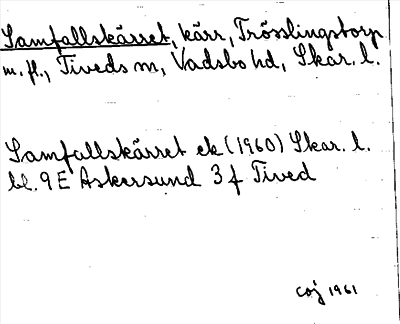 Samfallskärret, kärr, Trösslingstorp
m. fl., Tiveds sn, Vadsbo hd, Skar. l.
Samfallskärret ek (1960) Skar. l.
bl. 9E Askersund 3 f Tived
Coj 1961